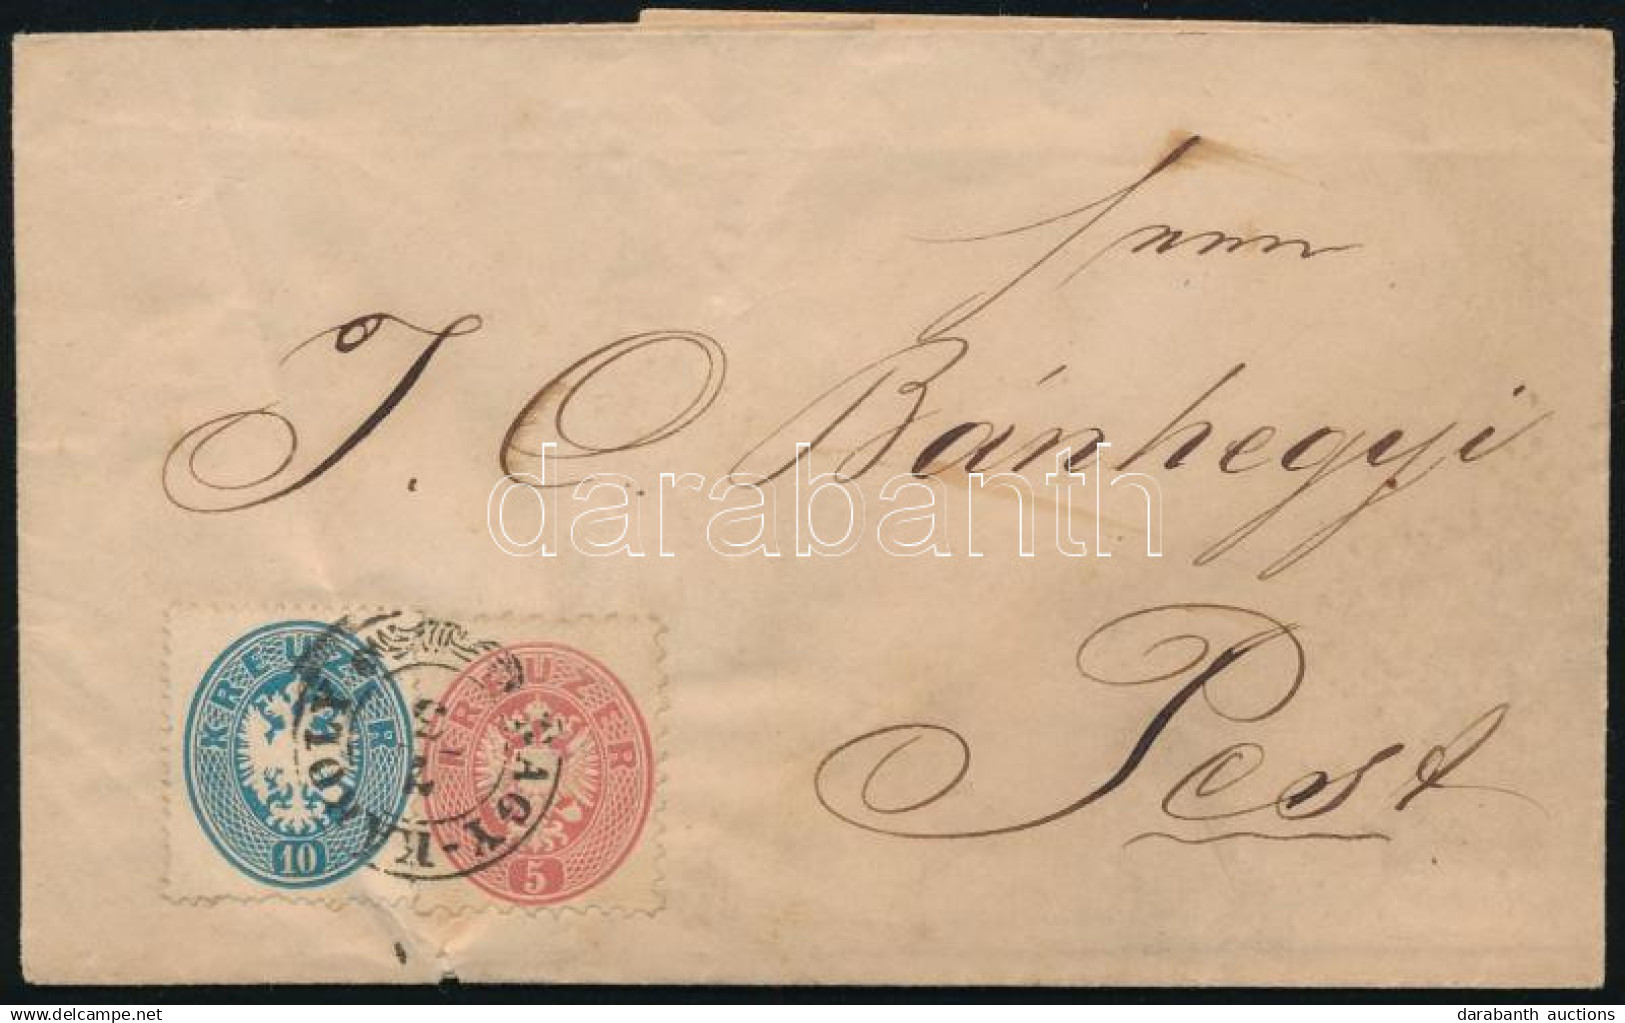 J. C. Bánhegyi
Pest
KREUZER
10
KREUZER
5
NAGY-KÁROLY
darabanth
www.delcampe.net
darabanth auctions